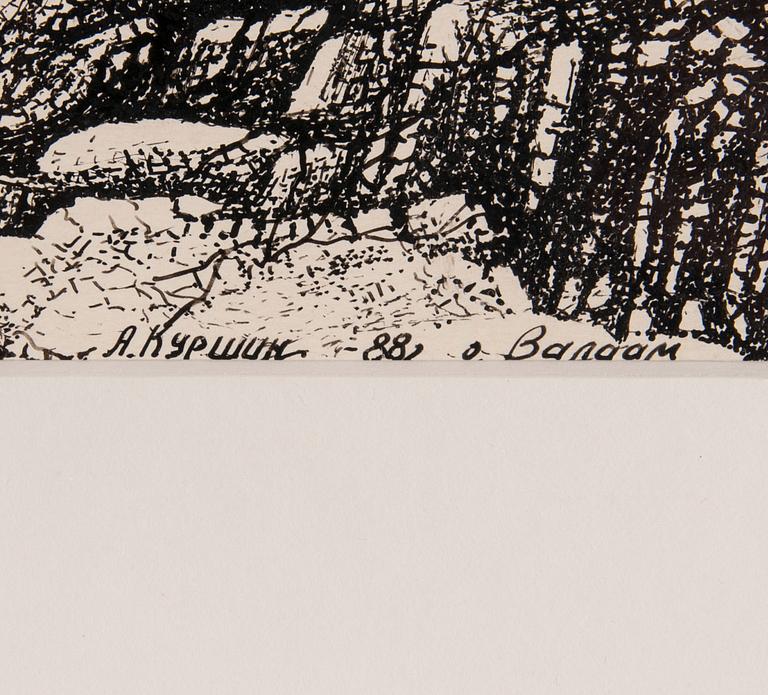 А. Куршин -88, о Валаам